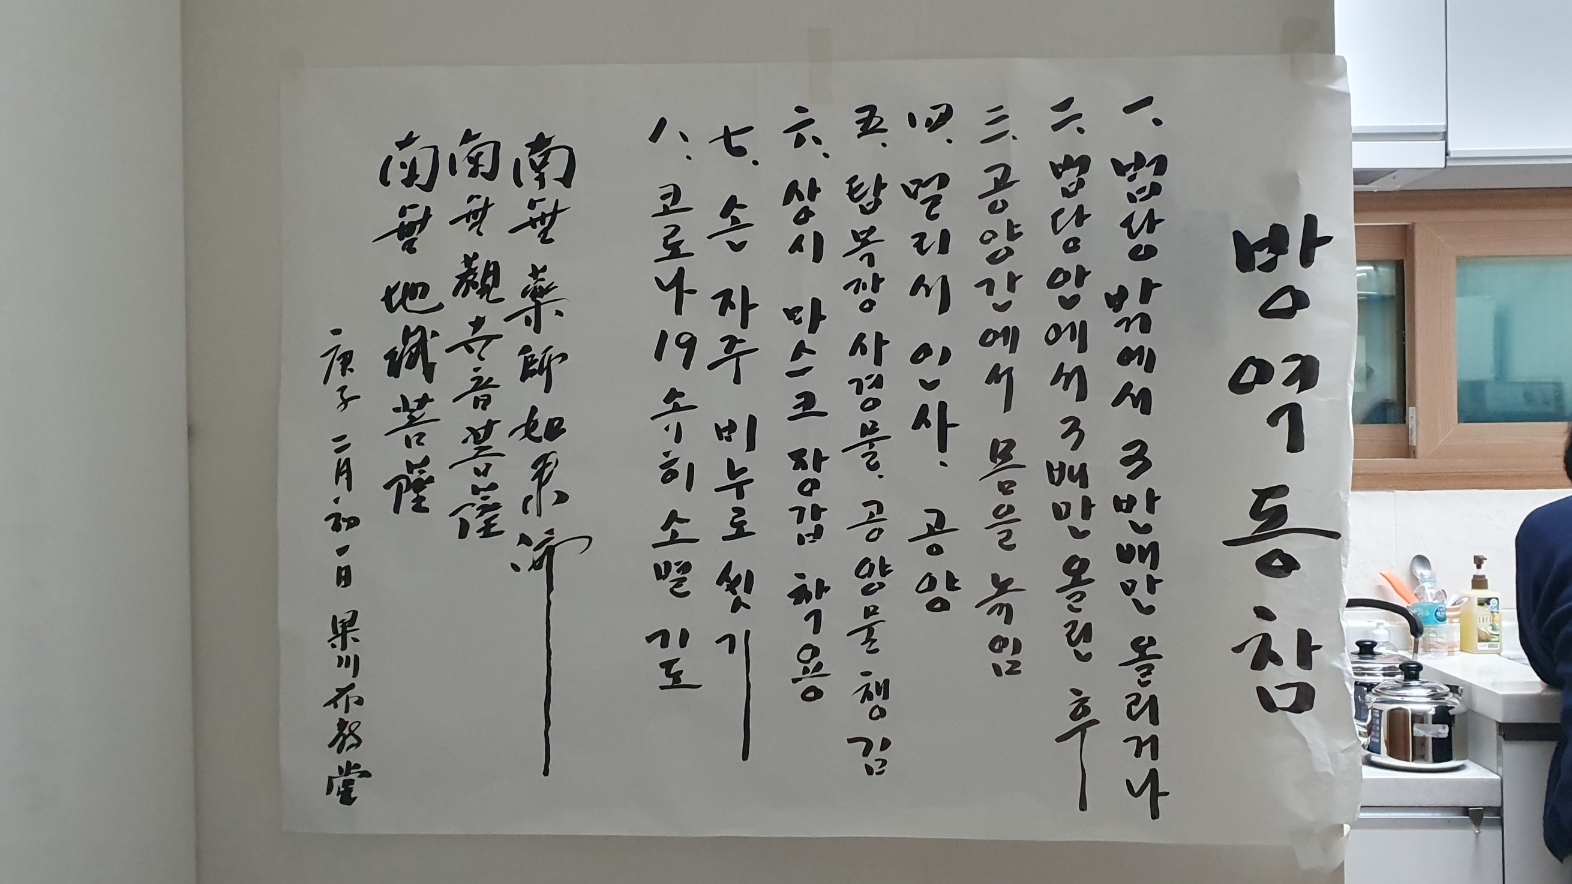 방역동참
一. 법당 밖에서 3반배만 올리거나
二. 법당 안에서 3배만 올린 후
三. 공양간에서 몸을 녹임
四. 멀리서 인사. 공양
五. 탑목장 사경물. 공양물 챙김
六. 상시 마스크 장갑 착용
七. 손 자주 비누로 씻기
八. 코로나19 속히 소멸 기도
南無藥師如來
南無觀世音菩薩
南無地藏菩薩
庚子 二月 初一日 果川 布敎堂